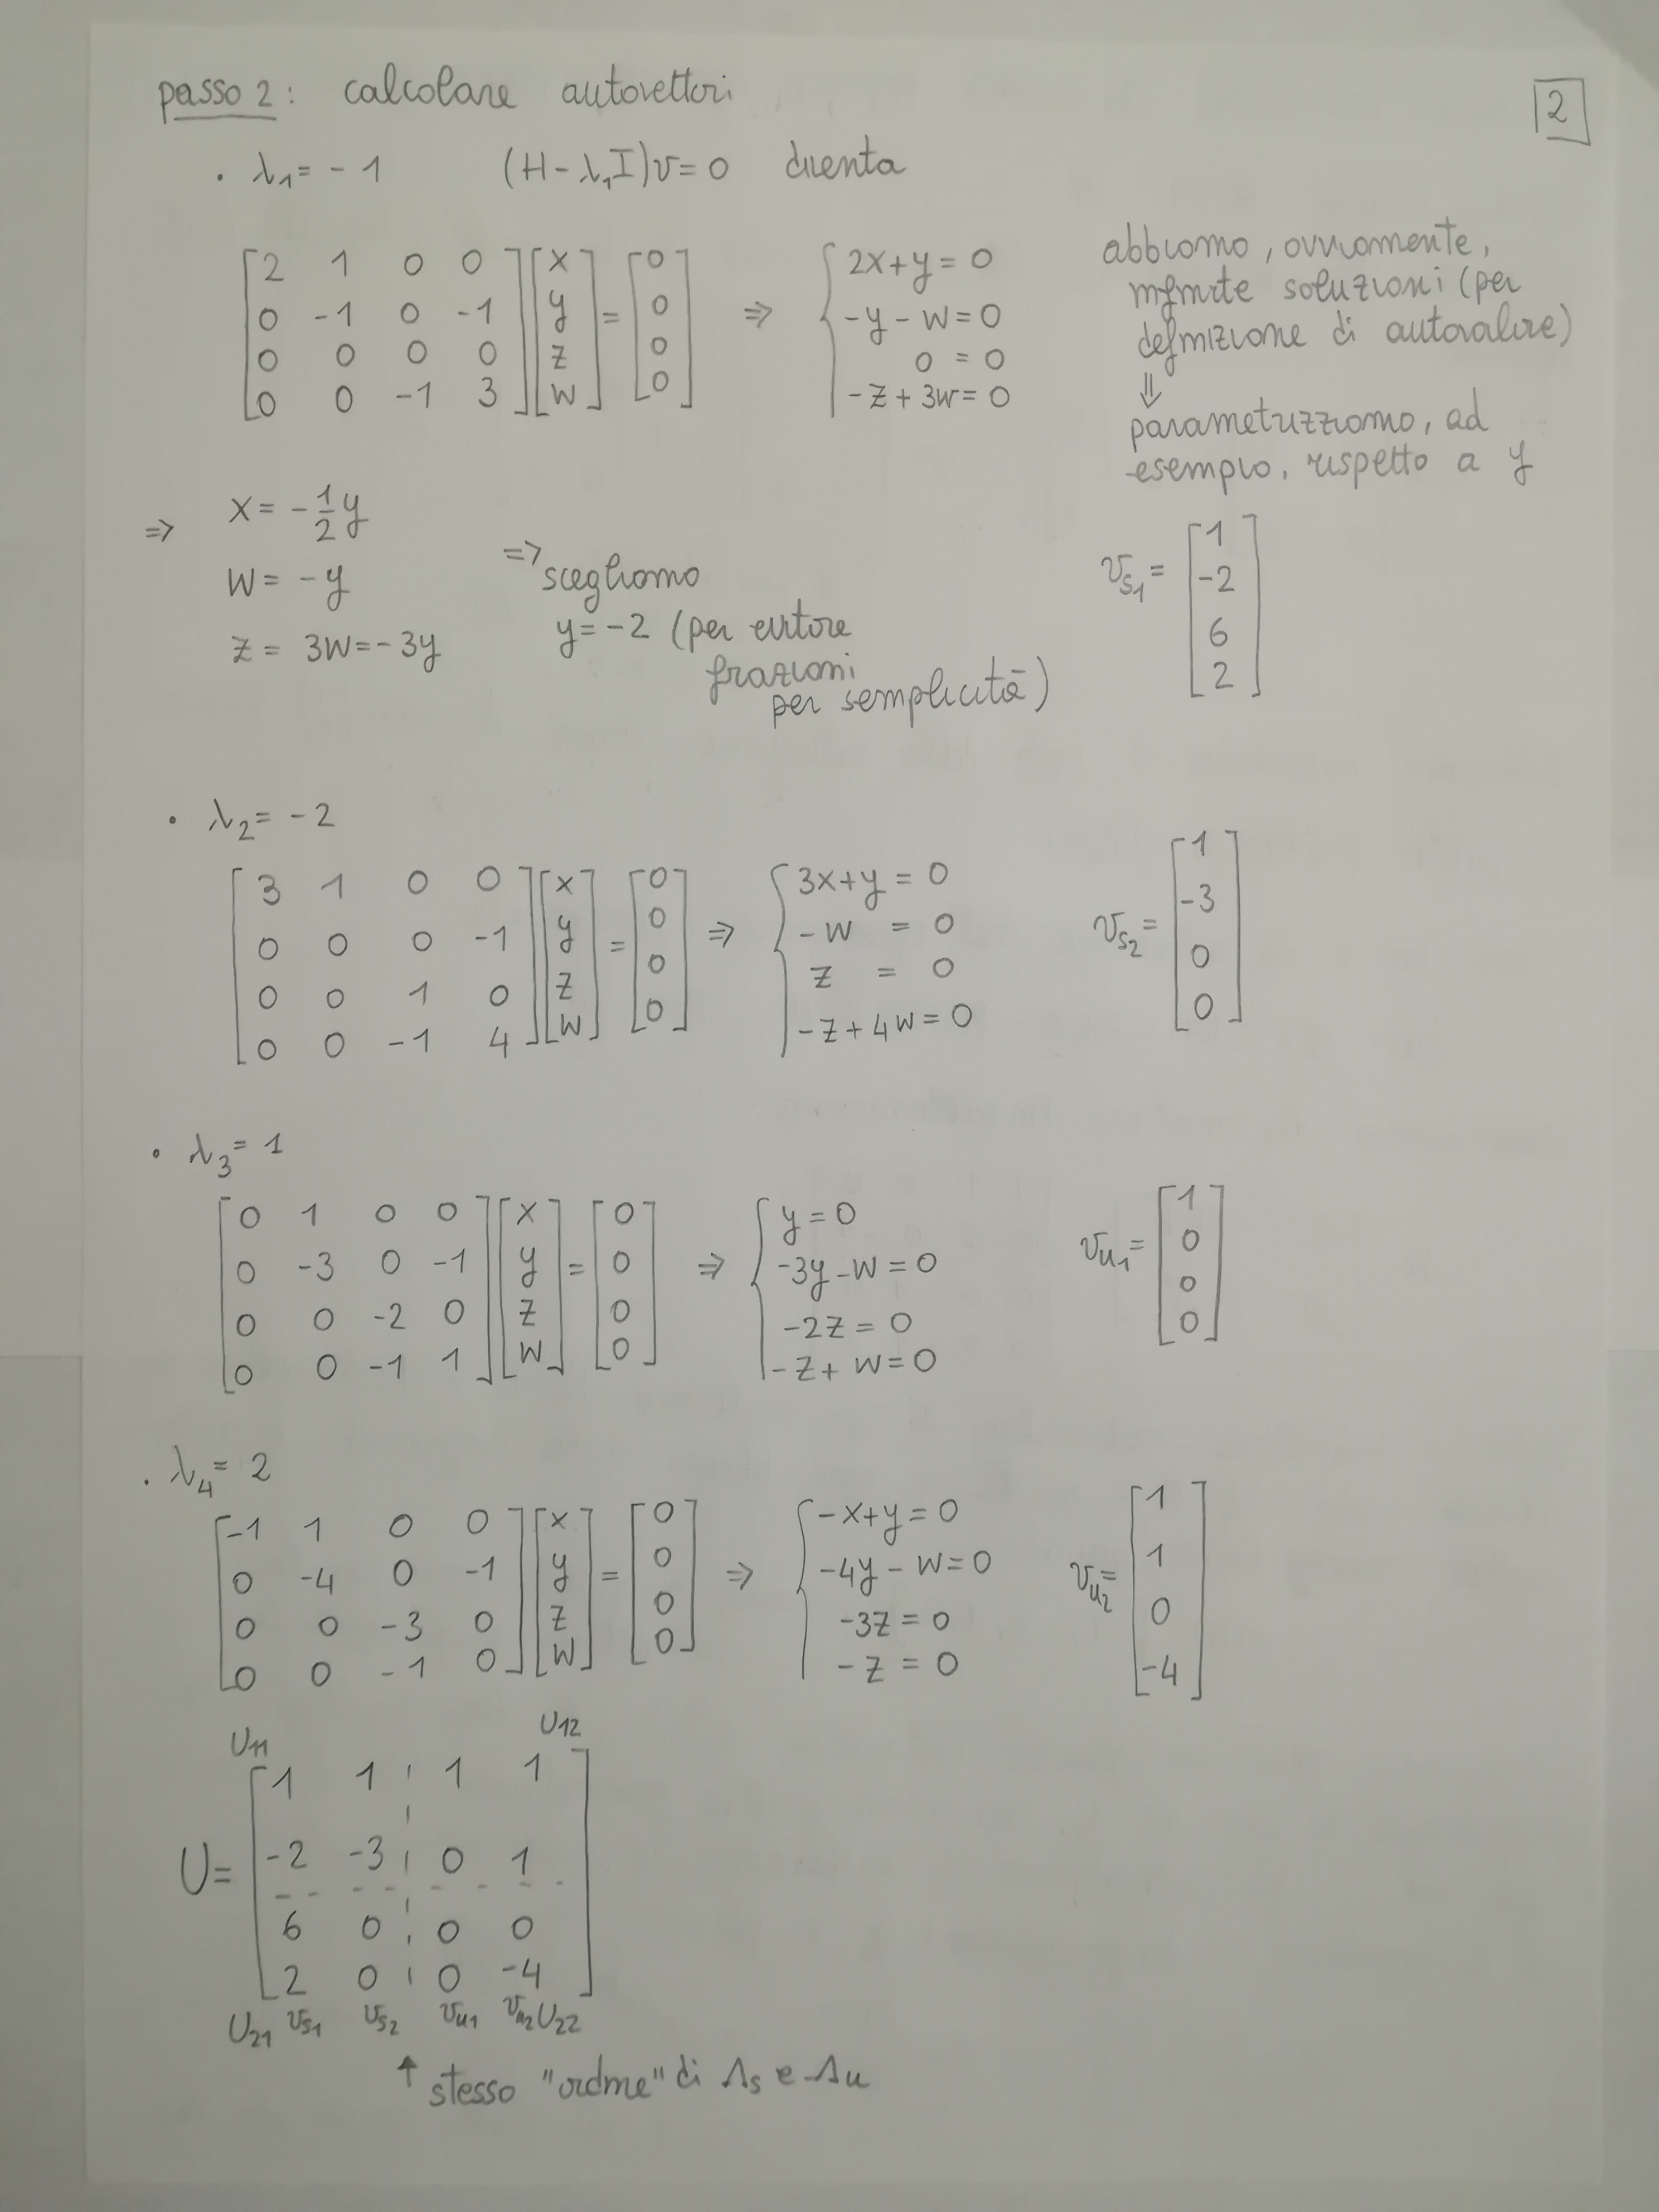 passo 2: calcolare autovettori
2
· λ1 = -1 (H-λ1I)v=0 diventa
[2 1 0 0] [x] = [0] ⇒ { 2x+y=0
[0 -1 0 -1] [y] [0] -y-w=0
[0 0 0 0] [z] [0] 0=0
[0 0 -1 3] [w] [0] -z+3w=0
abbiamo, ovviamente,
infinite soluzioni (per
definizione di autovalore)
⇓
parametrizziamo, ad
esempio, rispetto a y
⇒ x = -1/2 y
w = -y
z = 3w = -3y
⇒ scegliamo
y=-2 (per evitare
frazioni
per semplicità)
vs1 = [1
-2
6
2]
· λ2 = -2
[3 1 0 0] [x] = [0] ⇒ { 3x+y = 0
[0 0 0 -1] [y] [0] -w = 0
[0 0 1 0] [z] [0] z = 0
[0 0 -1 4] [w] [0] -z+4w=0
vs2 = [1
-3
0
0]
· λ3 = 1
[0 1 0 0] [x] = [0] ⇒ { y=0
[0 -3 0 -1] [y] [0] -3y-w=0
[0 0 -2 0] [z] [0] -2z=0
[0 0 -1 1] [w] [0] -z+w=0
vu1 = [1
0
0
0]
· λ4 = 2
[-1 1 0 0] [x] = [0] ⇒ { -x+y=0
[0 -4 0 -1] [y] [0] -4y-w=0
[0 0 -3 0] [z] [0] -3z=0
[0 0 -1 0] [w] [0] -z=0
vu2 = [1
1
0
-4]
U11 U12
[1 1 1 1]
U= [-2 -3 0 1]
[6 0 0 0]
[2 0 0 -4]
U21 vs1 vs2 vu1 vu2 U22
↑ stesso "ordine" di Λs e Λu